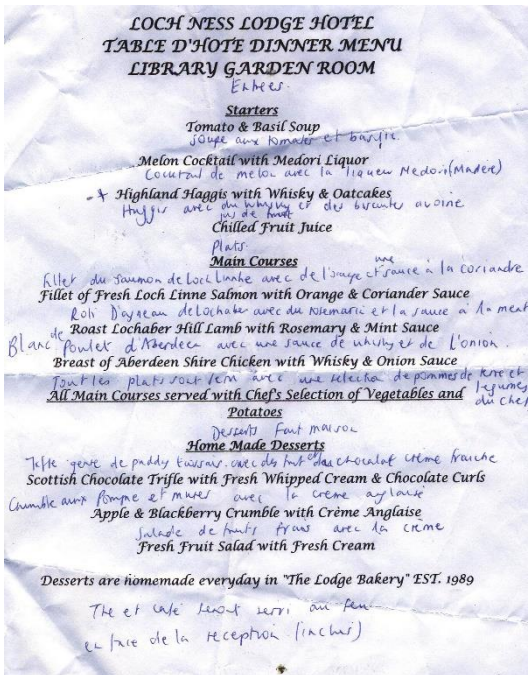 LOCH NESS LODGE HOTEL
TABLE D'HOTE DINNER MENU
LIBRARY GARDEN ROOM
Entrees.
Starters
Tomato & Basil Soup
Soupe aux tomates et basilic
Melon Cocktail with Medori Liquor
Cocktail de melon avec la liqueur Medori (Madere)
Highland Haggis with Whisky & Oatcakes
Haggis avec du whisky et des biscuits avoine
jus de fruit
Chilled Fruit Juice
Plats
Main Courses
Fillet du saumon de Loch Linnhe avec de l'orange et une sauce à la coriandre
Fillet of Fresh Loch Linne Salmon with Orange & Coriander Sauce
Roti D'agneau de Lochaber avec du rosemarie et la sauce à la
Roast Lochaber Hill Lamb with Rosemary & Mint Sauce
Blanc de Poulet d'Aberdeen avec une sauce de whisky et de l'onion.
Breast of Aberdeen Shire Chicken with Whisky & Onion Sauce
Tout les plats sont servi avec une selection de pommes de terre et legumes du chef
All Main Courses served with Chef's Selection of Vegetables and
Potatoes
Desserts Fait maison
Home Made Desserts
genre de avec des fruit et du chocolat crème fraiche
Scottish Chocolate Trifle with Fresh Whipped Cream & Chocolate Curls
Crumble aux Pomme et mures avec la creme anglaise
Apple & Blackberry Crumble with Crème Anglaise
Salade de fruits frais avec la crème
Fresh Fruit Salad with Fresh Cream
Desserts are homemade everyday in "The Lodge Bakery" EST. 1989
The et café seront servi au feu
en face de la reception (inclus)